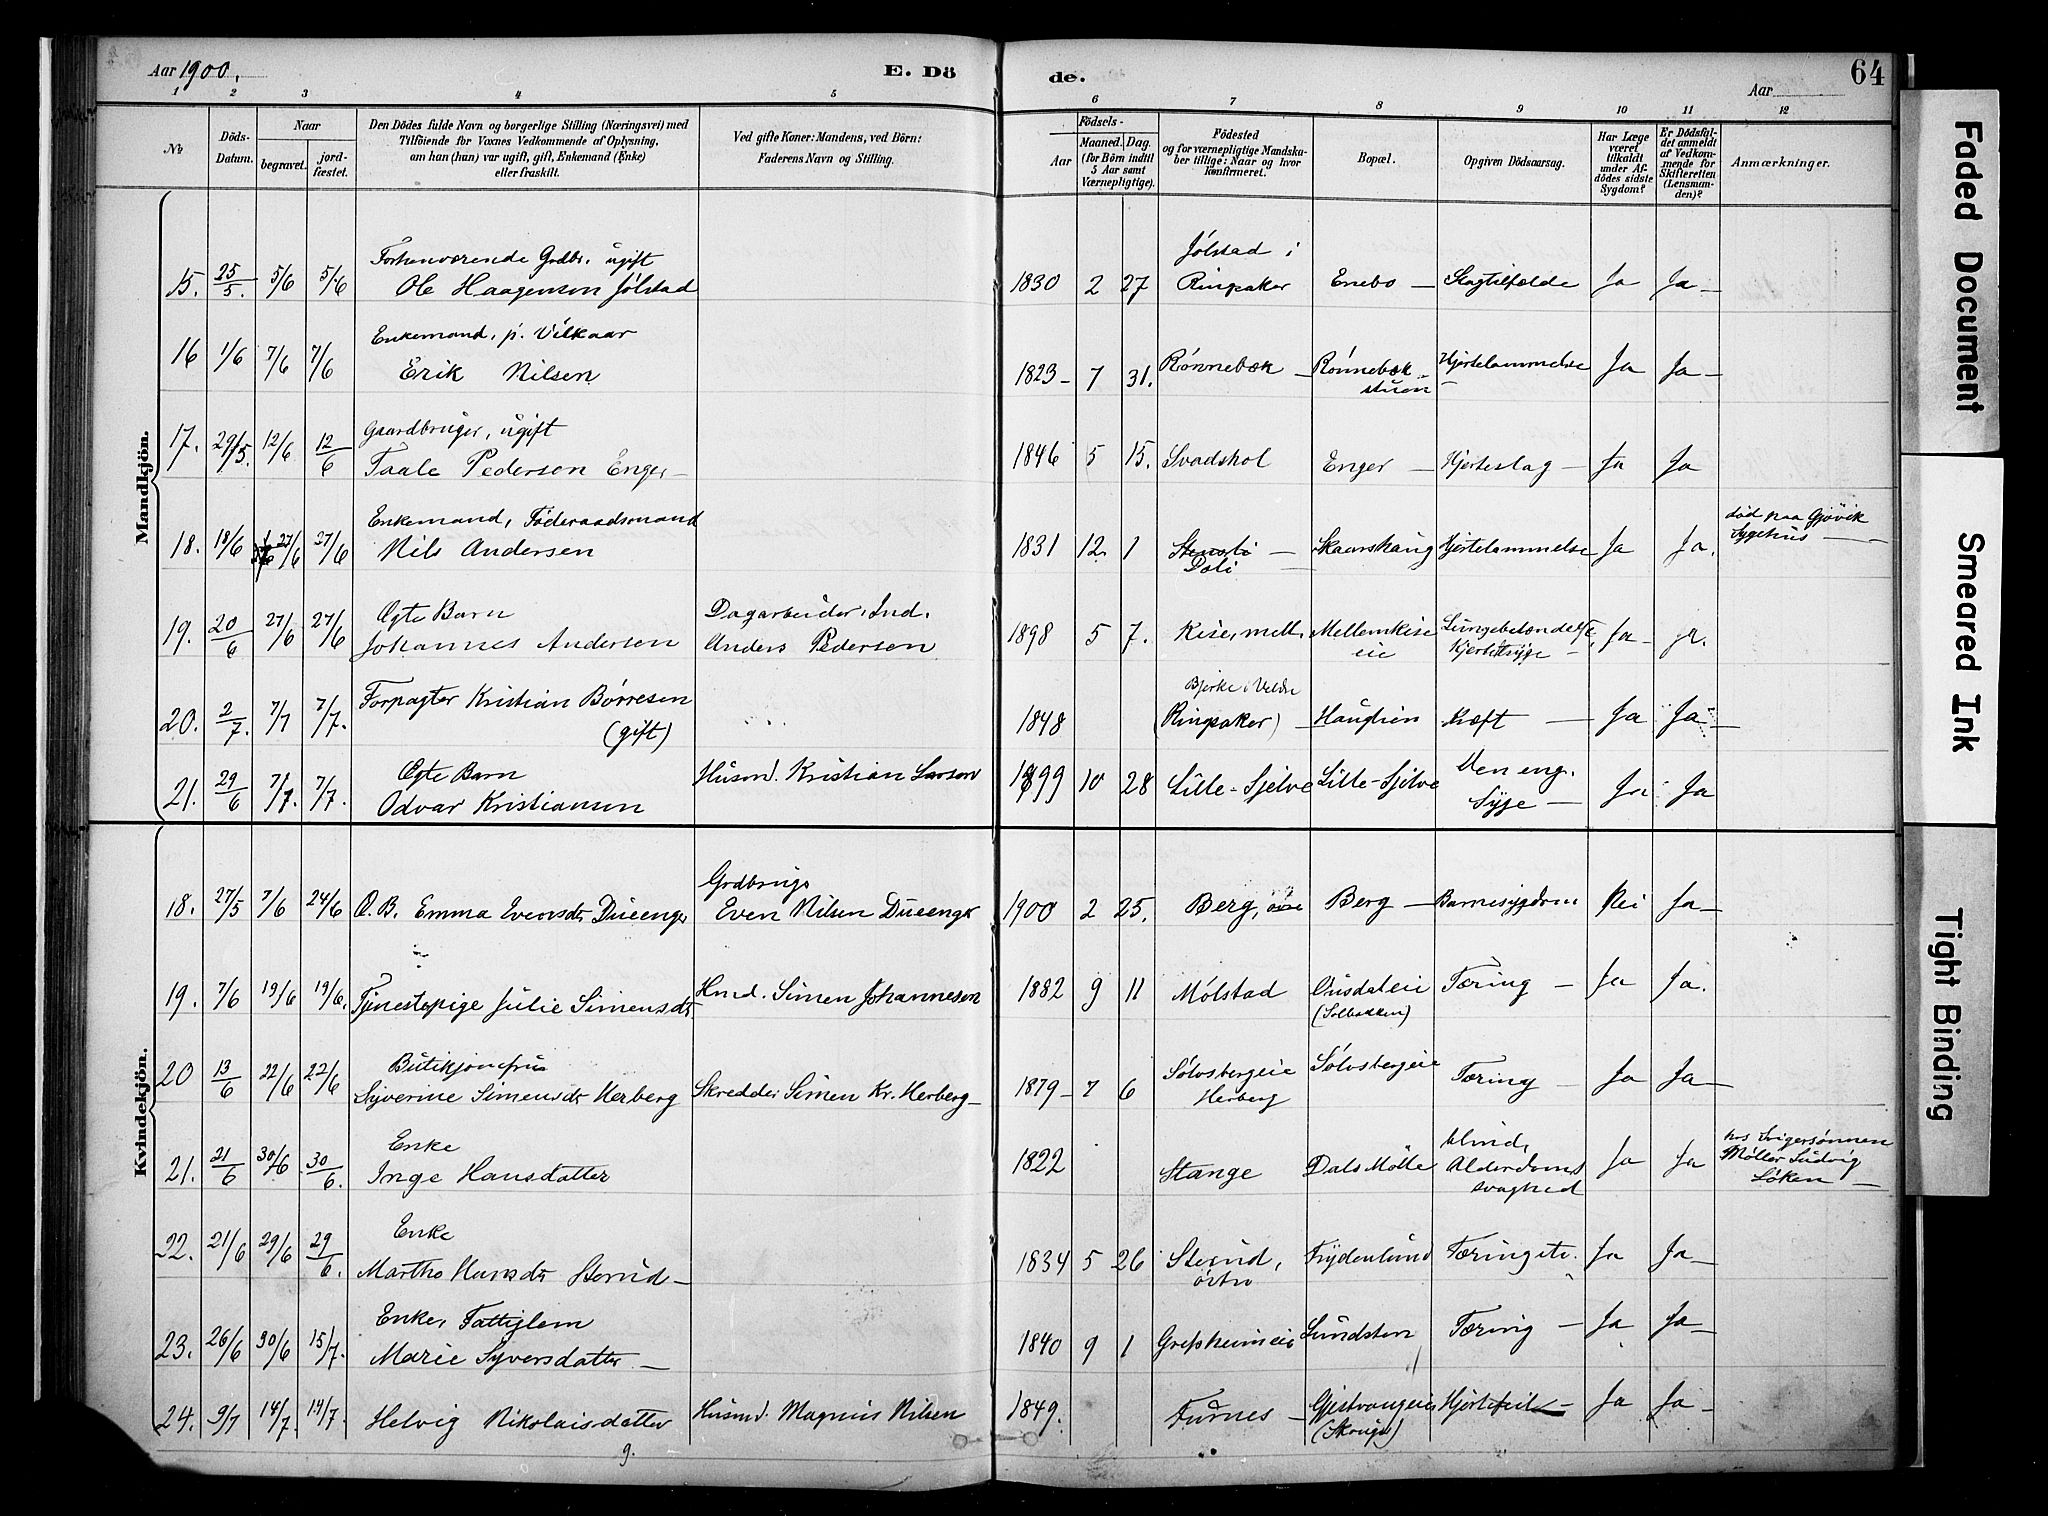 Aar 1900.
E. Dö
de.
Aar
64
1 2 3 4 5 6 7 8 9 10 11 12
No
Döds-Datum.
Naar
begravet.
jordfæstet.
Den Dödes fulde Navn og borgerlige Stilling (Næringsvei) med
Tilföiende for Voxnes Vedkommende af Oplysning,
om han (hun) var ugift, gift, Enkemand (Enke)
eller fraskilt.
Ved gifte Koner: Mandens, ved Börn:
Faderens Navn og Stilling.
Födsels-
Aar
Maaned. Dag.
(for Börn indtil
5 Aar samt
Værnepligtige).
Födested
og for værnepligtige Mandska-
ber tillige: Naar og hvor
konfirmeret.
Bopæl.
Opgiven Dödsaarsag.
Har Læge
været
tilkaldt
under Af-
dödes sidste
Sygdom?
Er Dödsfal-
det anmeldt
af Vedkom-
mende for
Skifteretten
(Lensman-
den)?
Anmærkninger.
Mandkjön.
Forhenværende Grdbr. ugift
15. 25/5. 5/6 5/6 Ole Haagensen Jølstad 1830 2 27 Jølstad i Ringsaker Enebo — Slagtilfælde Ja Ja —
Enkemand, p. Vilkaar
16 1/6 7/6 7/6 Erik Nilsen 1823 — 7 31. Rønnebæk — Rønnebækstuen Hjertelammelse — Ja Ja —
Gaardbruger, ugift
17. 29/5. 12/6 12/6 Taale Pedersen Enger — 1846 5 15. Svadshol Enger — Hjerteslag — Ja Ja
Enkemand, Föderaadsmand
18. 18/6 27/6 27/6 Nils Andersen 1831 12. 1 Stensli — Dæli Skaarshaug Hjertelammelse Ja Ja. død paa Gjøvik Sygehus —
Ægte Barn Dagarbeider, Ind.
19. 20/6 27/6 27/6 Johannes Andersen Anders Pedersen 1898 5 7. Kise, mell. Mellemkise eie Lungebetændelse, Ja — Ja.
20. 2/7. 7/7 7/7. Forpagter Kristian Børresen (gift) 1848 Bjerke i Veldre (Ringsaker) — Hauglien Kræft — Ja Ja —
Ægte Barn Husmd. Kristian Larsen
21. 29/6 7/7. 7/7. Odvar Kristiansen 1899 10 28 Lille-Sjelve Lille-Sjelve Den eng. Syge — Ja Ja
Kvindekjön.
Grdbrug.
18. 27/5 7/6 24/6 Æ.B. Emma Evensdtr Dueenger Even Nilsen Dueenger 1900 2 25. Berg, øvre Berg — Barnesygdom Nei Ja —
19. 7/6 19/6 19/6. Tjenestepige Julie Simensdtr Hmd. Simen Johannesen 1882 9 11 Mølstad Ousdaleie (Solbakken) Tæring — Ja Ja.
Butikjomfru
20 13/6 22/6 22/6 Syverine Simensdtr Herberg Skredder Simen Kr. Herberg — 1879 — 7 6 Sølvsbergeie Herberg Sølvsbergeie Tæring — Ja Ja —
Enke
21. 21/6 30/6 30/6. Inge Hansdatter 1822 Stange Dals Mølle blind, Alderdomssvaghed Ja Ja hos Svigersønnen Møller Ludvig Løken —
Enke
22. 21/6 29/6 29/6. Marthe Hansdtr Sterud — 1834 5 26 Sterud, østre Frydenlund Tæring Ja Ja —
Enke, Fattiglem
23. 26/6 30/6 15/7. Marie Syversdatter — 1840 9 1 Grefsheimeie Sundsten Tæring — Ja Ja —
24. 9/7 14/7. 14/7. Helvig Nikolaisdatter Husmd. Magnus Nilsen 1849. Furnes — Gjestvangeie Hjertefeil — Ja Ja —
9.
Faded Document
Smeared Ink
Tight Binding